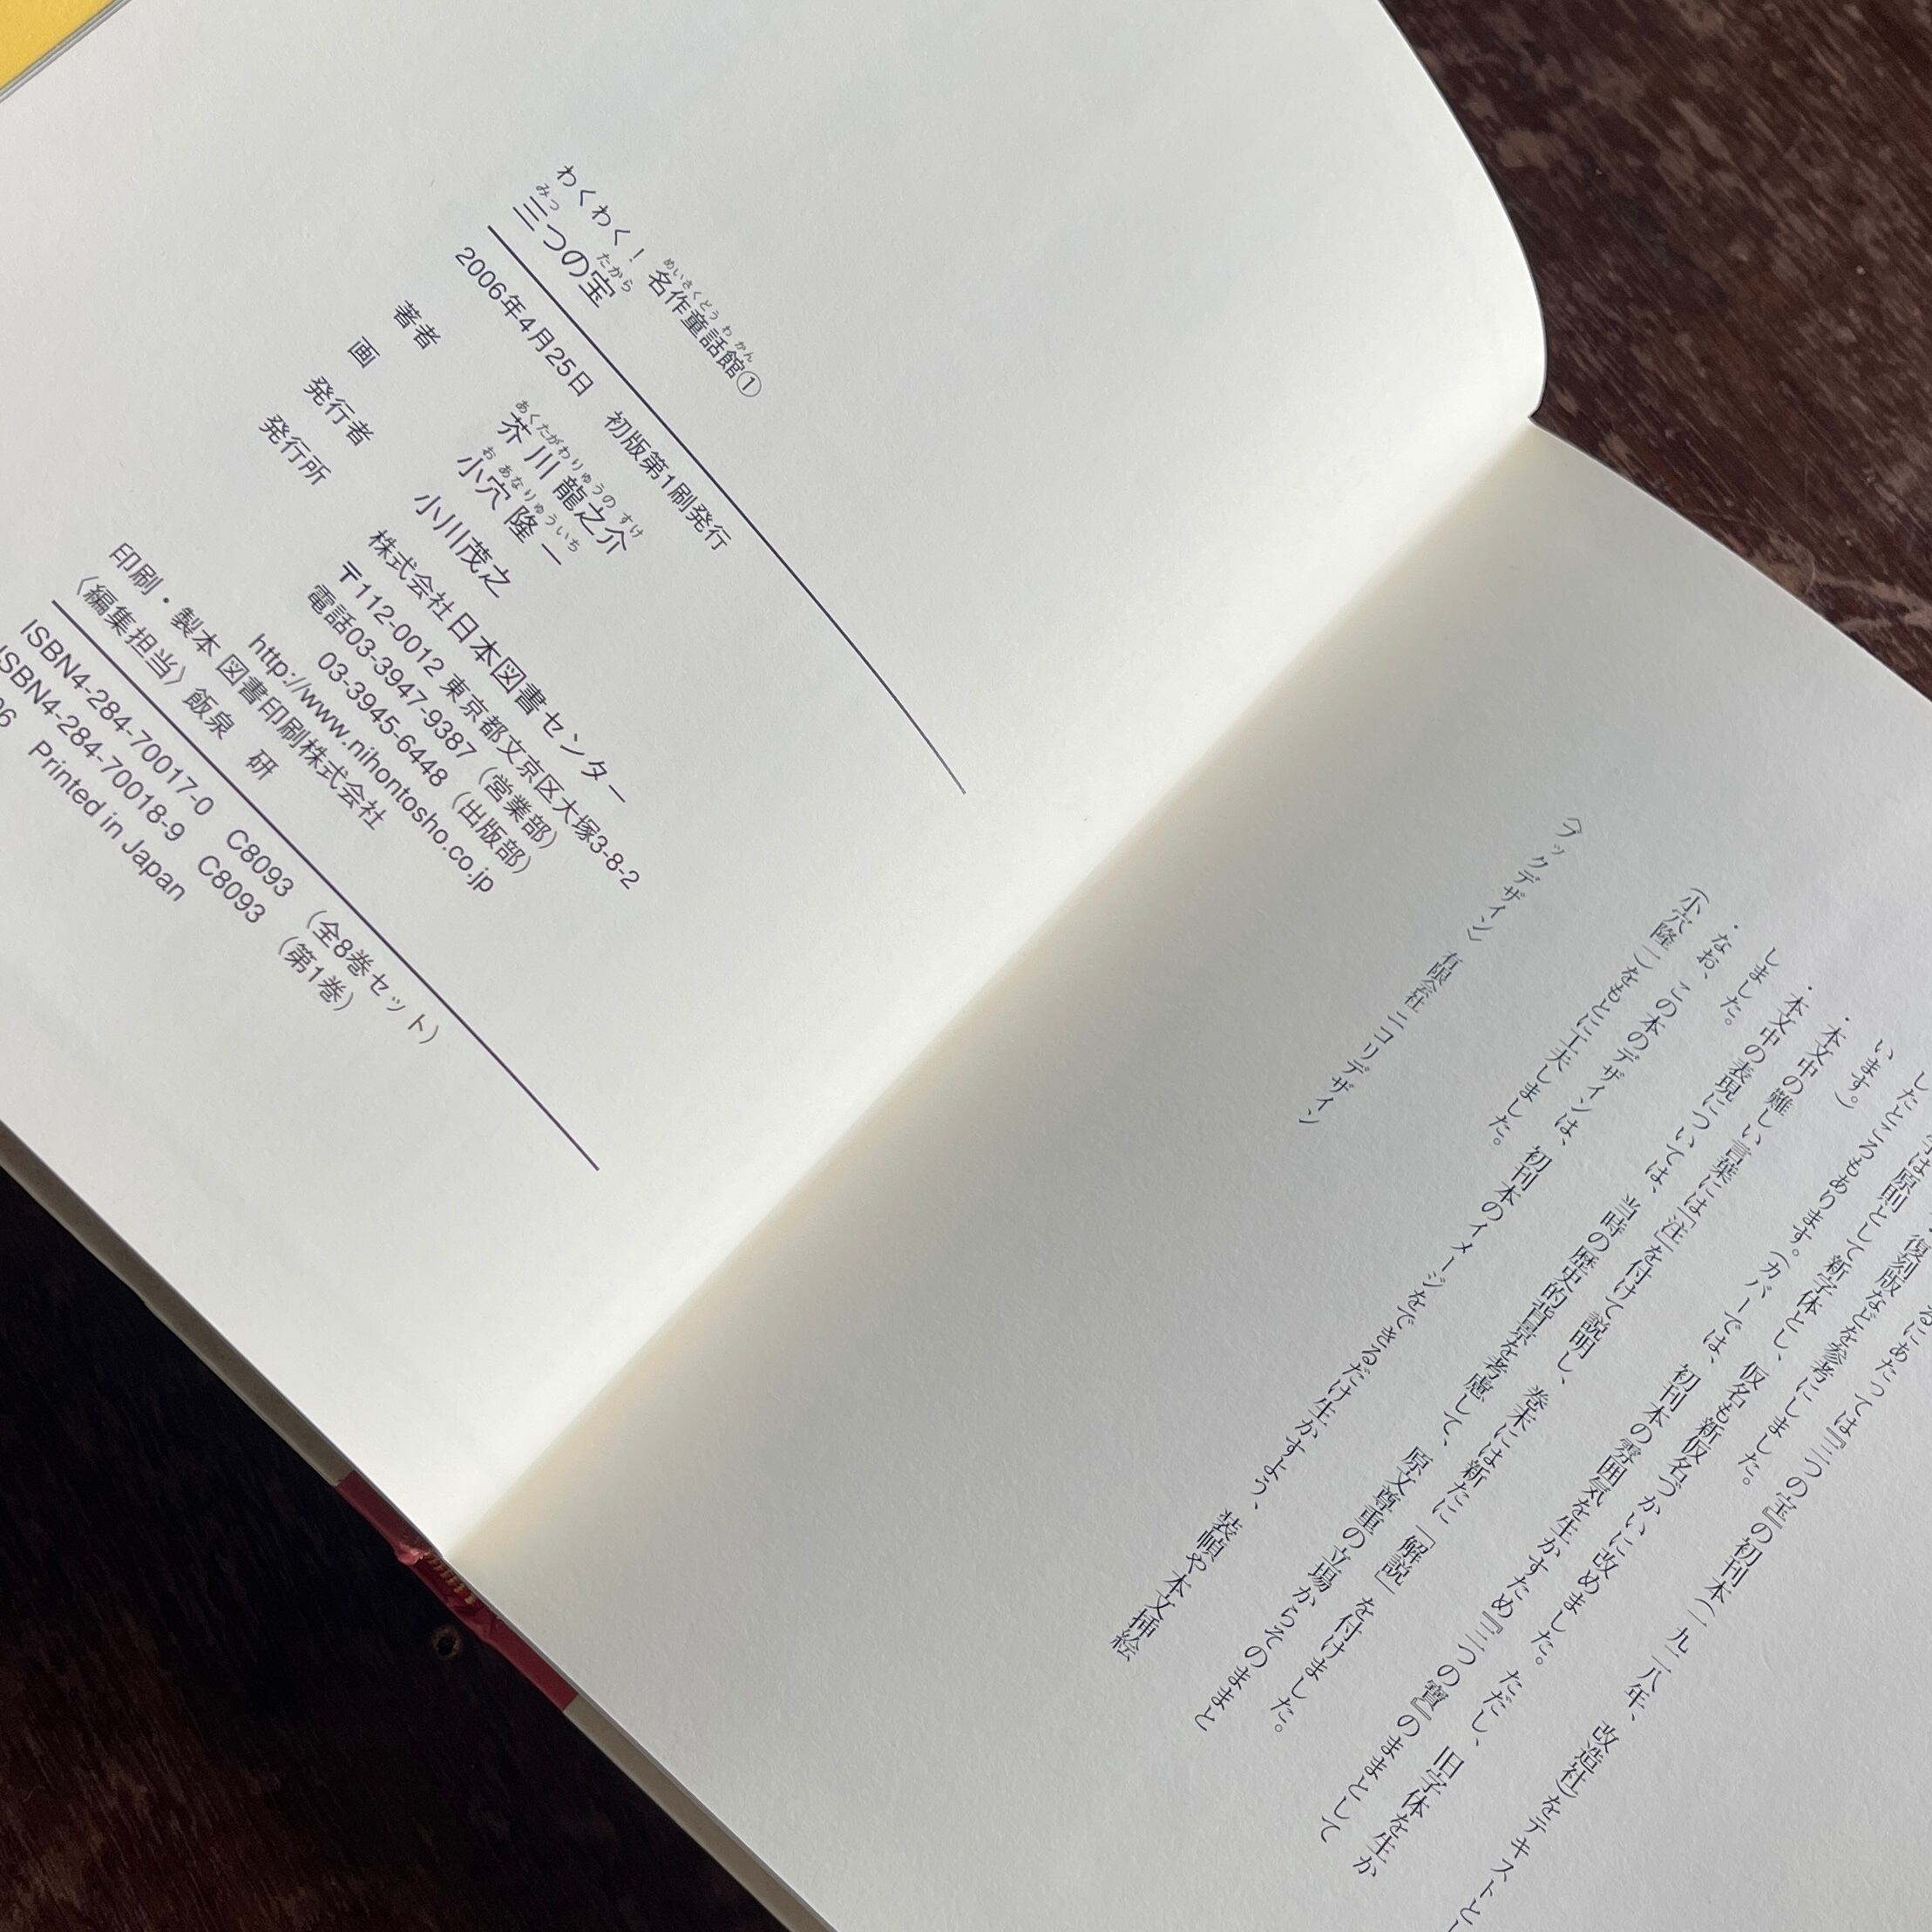 わくわく！名作童話館①
三つの宝
2006年4月25日　初版第1刷発行
著者　芥川龍之介
画　小穴隆一
発行者　小川茂之
発行所　株式会社日本図書センター
〒112-0012 東京都文京区大塚3-8-2
電話03-3947-9387（営業部）
03-3945-6448（出版部）
http://www.nihontosho.co.jp
印刷・製本 図書印刷株式会社
〈編集担当〉飯泉　研
ISBN4-284-70017-0　C8093　（全8巻セット）
ISBN4-284-70018-9　C8093　（第1巻）
Printed in Japan
るにあたっては『三つの宝』の初刊本（一九二八年、改造社）をテキストとし
は原則　復刻版などを参考にしました。
したところもあります。（カバーでは、初刊本の雰囲気を生かすため『三つの寶』のままとして
います。）
・本文中の難しい言葉には「注」を付けて説明し、巻末には新たに「解説」を付けました。
・本文中の表現については、当時の歴史的背景を考慮して、原文尊重の立場からそのままと
しました。
・なお、この本のデザインは、初刊本のイメージをできるだけ生かすよう、装幀や本文挿絵
（小穴隆一）をもとに工夫しました。
〈ブックデザイン〉有限会社 ニコリデザイン